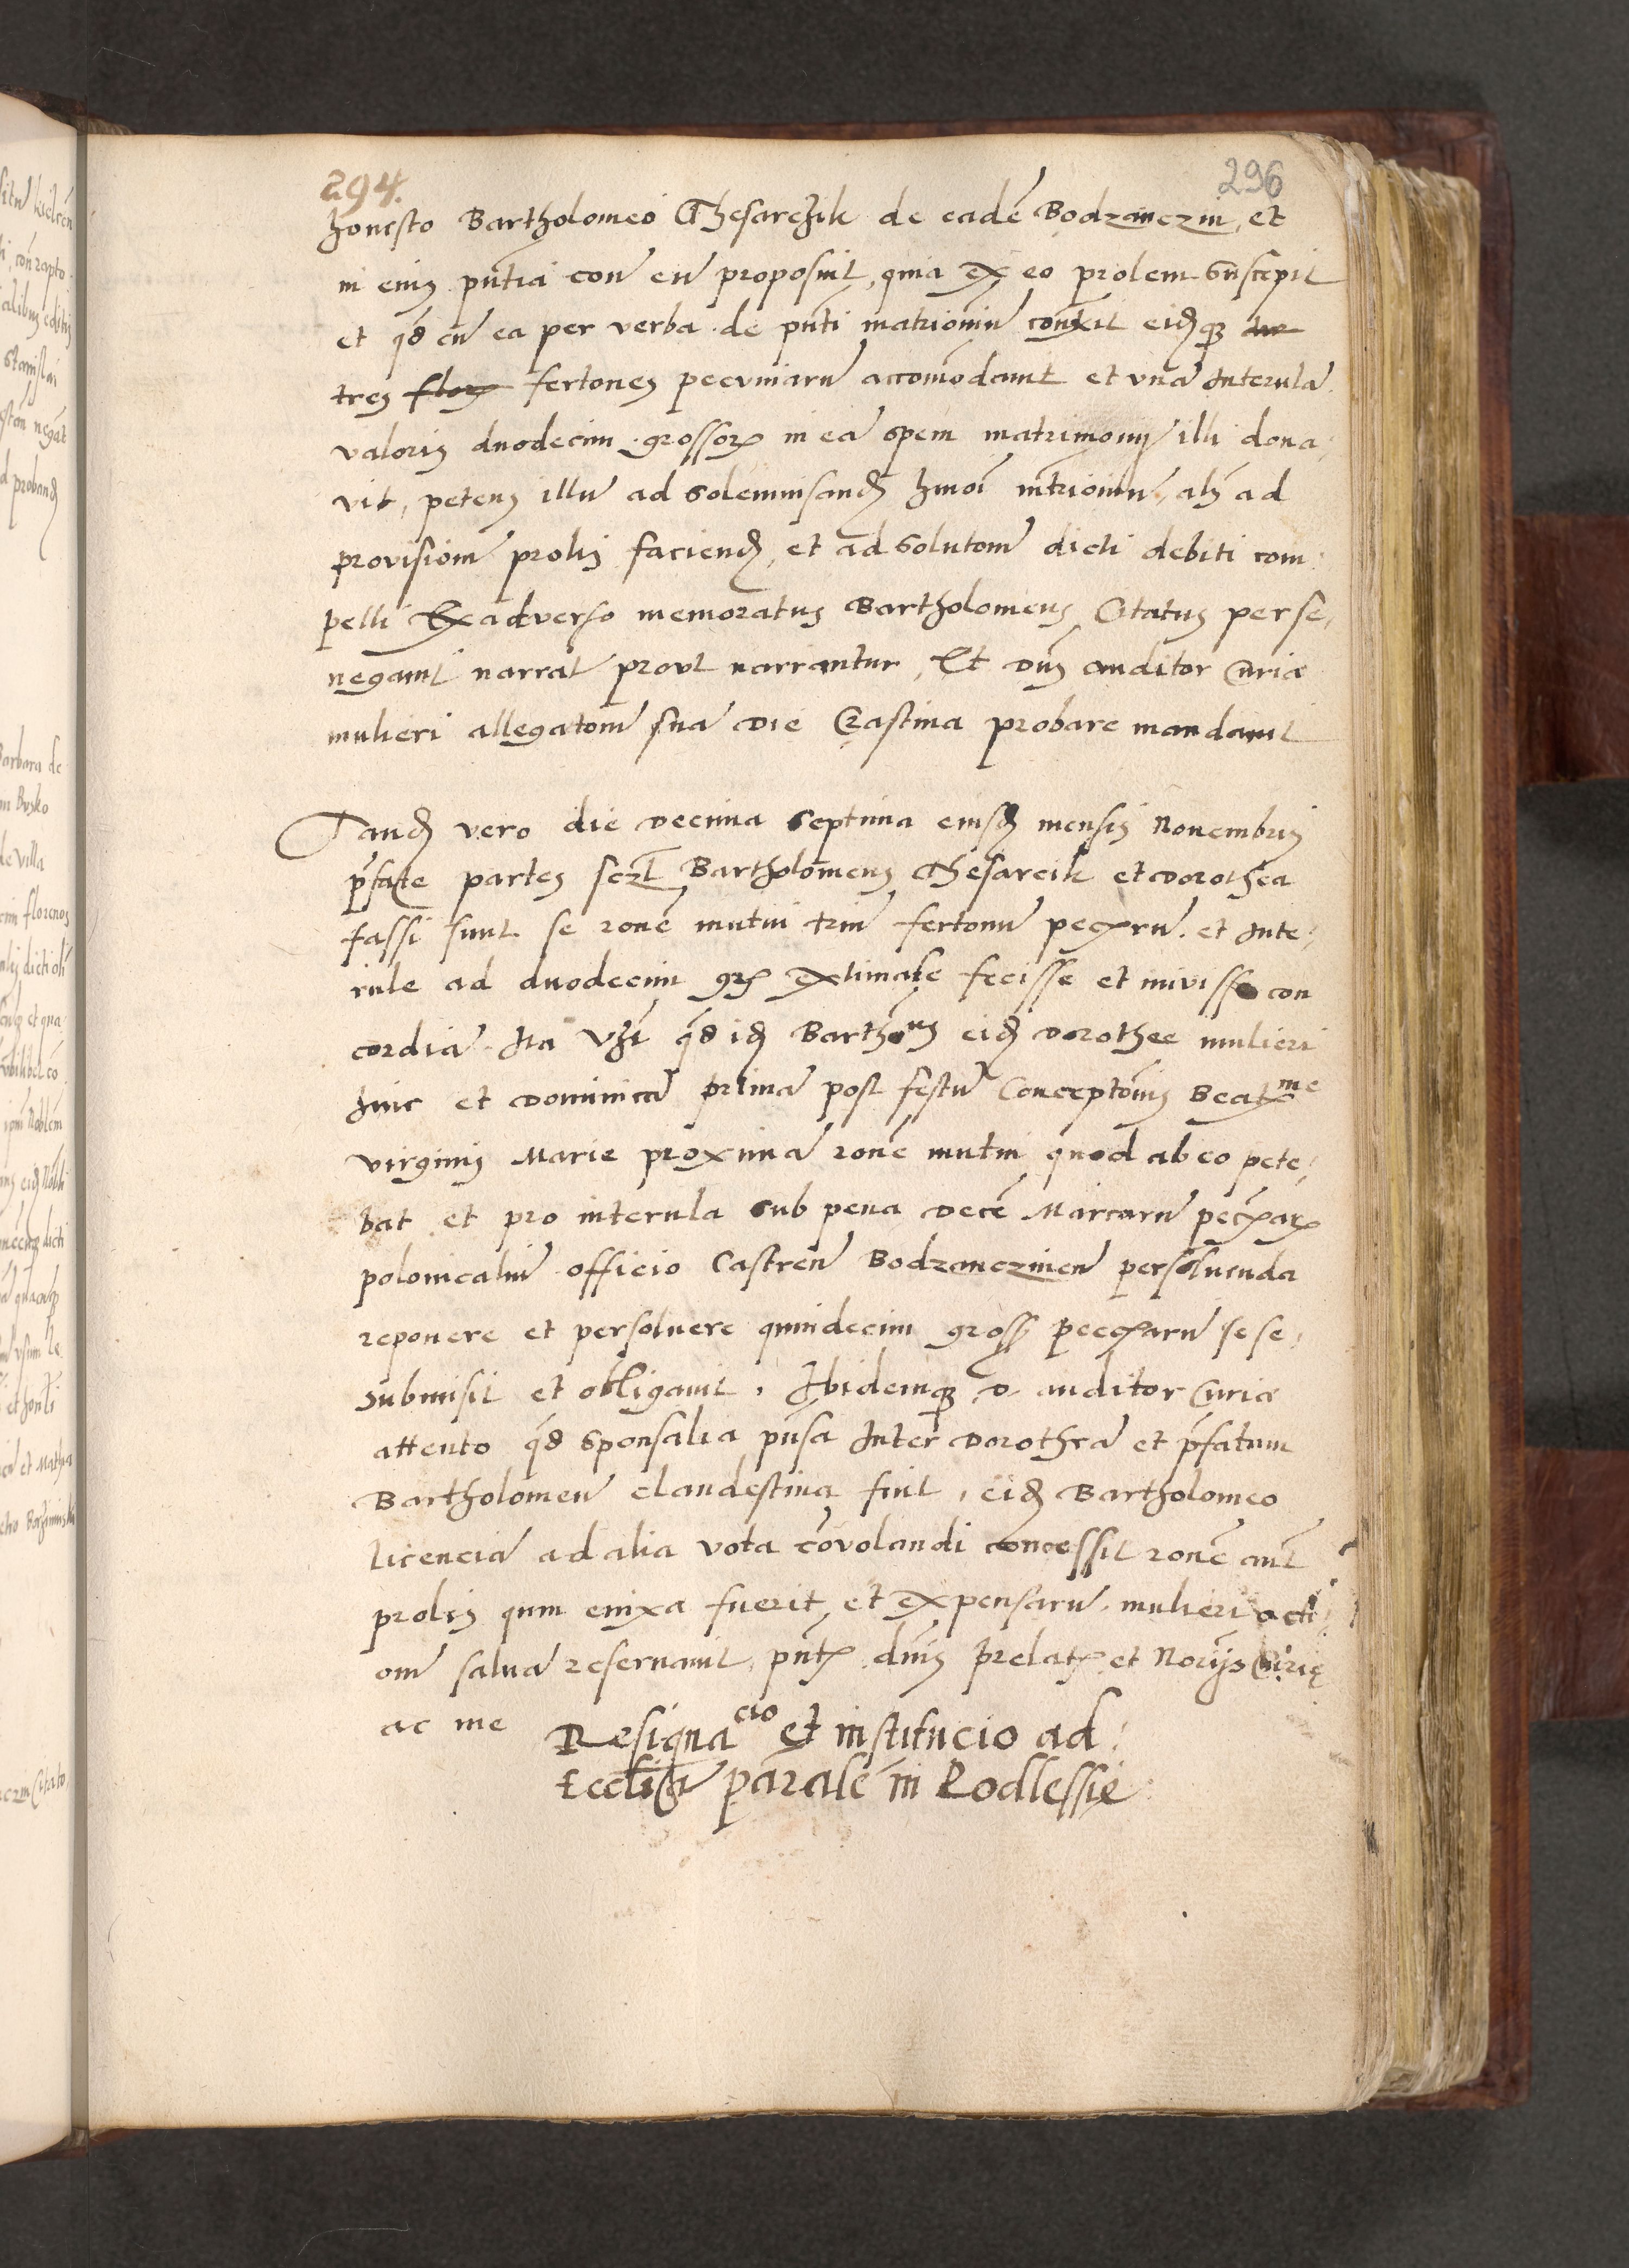 294.
296
honesto Bartholomeo Thesarczik de eadē Bodzanczin, et
in eius pn̄tia con eū proposuit, quia ex eo prolem suscepit
et qd cū ea per verba de pn̄ti matrioniū contxit eidq3 tre
tres flor fertones pecuniarū accomodauit et vnā Interulā
valoris duodecim grossor in eā spem matrimonij illi dona,
vit, petens illū ad solemnisand hmoi mtrioniū, als ad
provisionē prolis faciend, et ad solutonē dicti debiti com:
pelli Exadverso memoratus Bartholomeus Citatus per se,
negauit narrat prout narrantur, Et Dn̄s auditor Curiæ
mulieri allegatonē suā die Crastina probare mandauit
Tand vero die decima septima eiusd mensis Nouembris
p̄fate partes sczt Bartholomeus Thesarcik et Dorothea
fassi sunt se ronē mutui triū fertonū pecxrū et Inte:
rule ad duodecim gr̄ extimate fecisse et inivisse con
cordiā Ita vzt qd id Barthous eid Dorothee mulieri
hinc et dominicā primā post festū Conceptōnis Beatme
virginis Marie proximā ronē mutui quod ab eo pete:
bat et pro interula sub pena decē Marcarū pecxar
polonicaliū officio Castren̄ Bodzanczinen̄ persoluenda
reponere et persoluere quindecim gross pecxarū se se,
submisit et obligauit. Ibidemq3 D. auditor Curiæ
attento qd sponsalia pn̄sa Inter Dorotheā et p̄fatum
Bartholomeū clandestina fuit, eid Bartholomeo
licenciā ad alia vota cōvolandi concessit ronē aut
prolis quam enixa fuerit, et expensarū mulieri acti:
onē saluā reseruauit, pn̄t dnis prelat et Norijs Curię
ac me
Resignacio et institucio ad:
Eccliā paralē in Podlessie